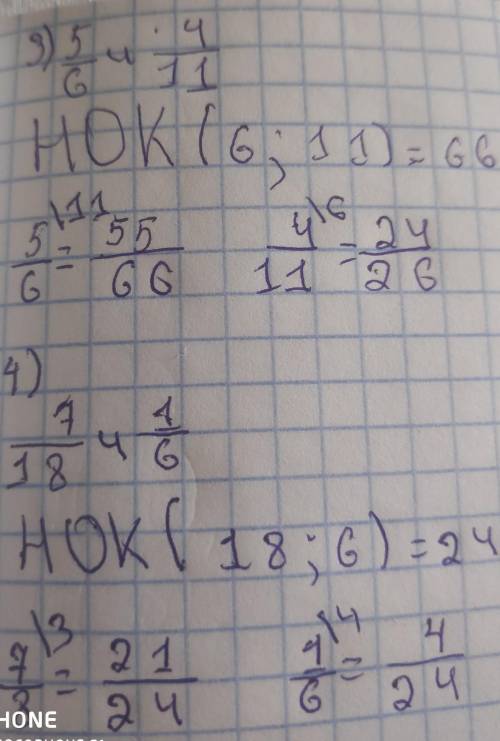 3) 5/6 и 4/11
НОК(6; 11) = 66
5/6 \11 = 55/66 4/11 \6 = 24/26
4)
7/18 и 1/6
НОК(18; 6) = 24
7/8 \3 = 21/24 1/6 \4 = 4/24
HONE